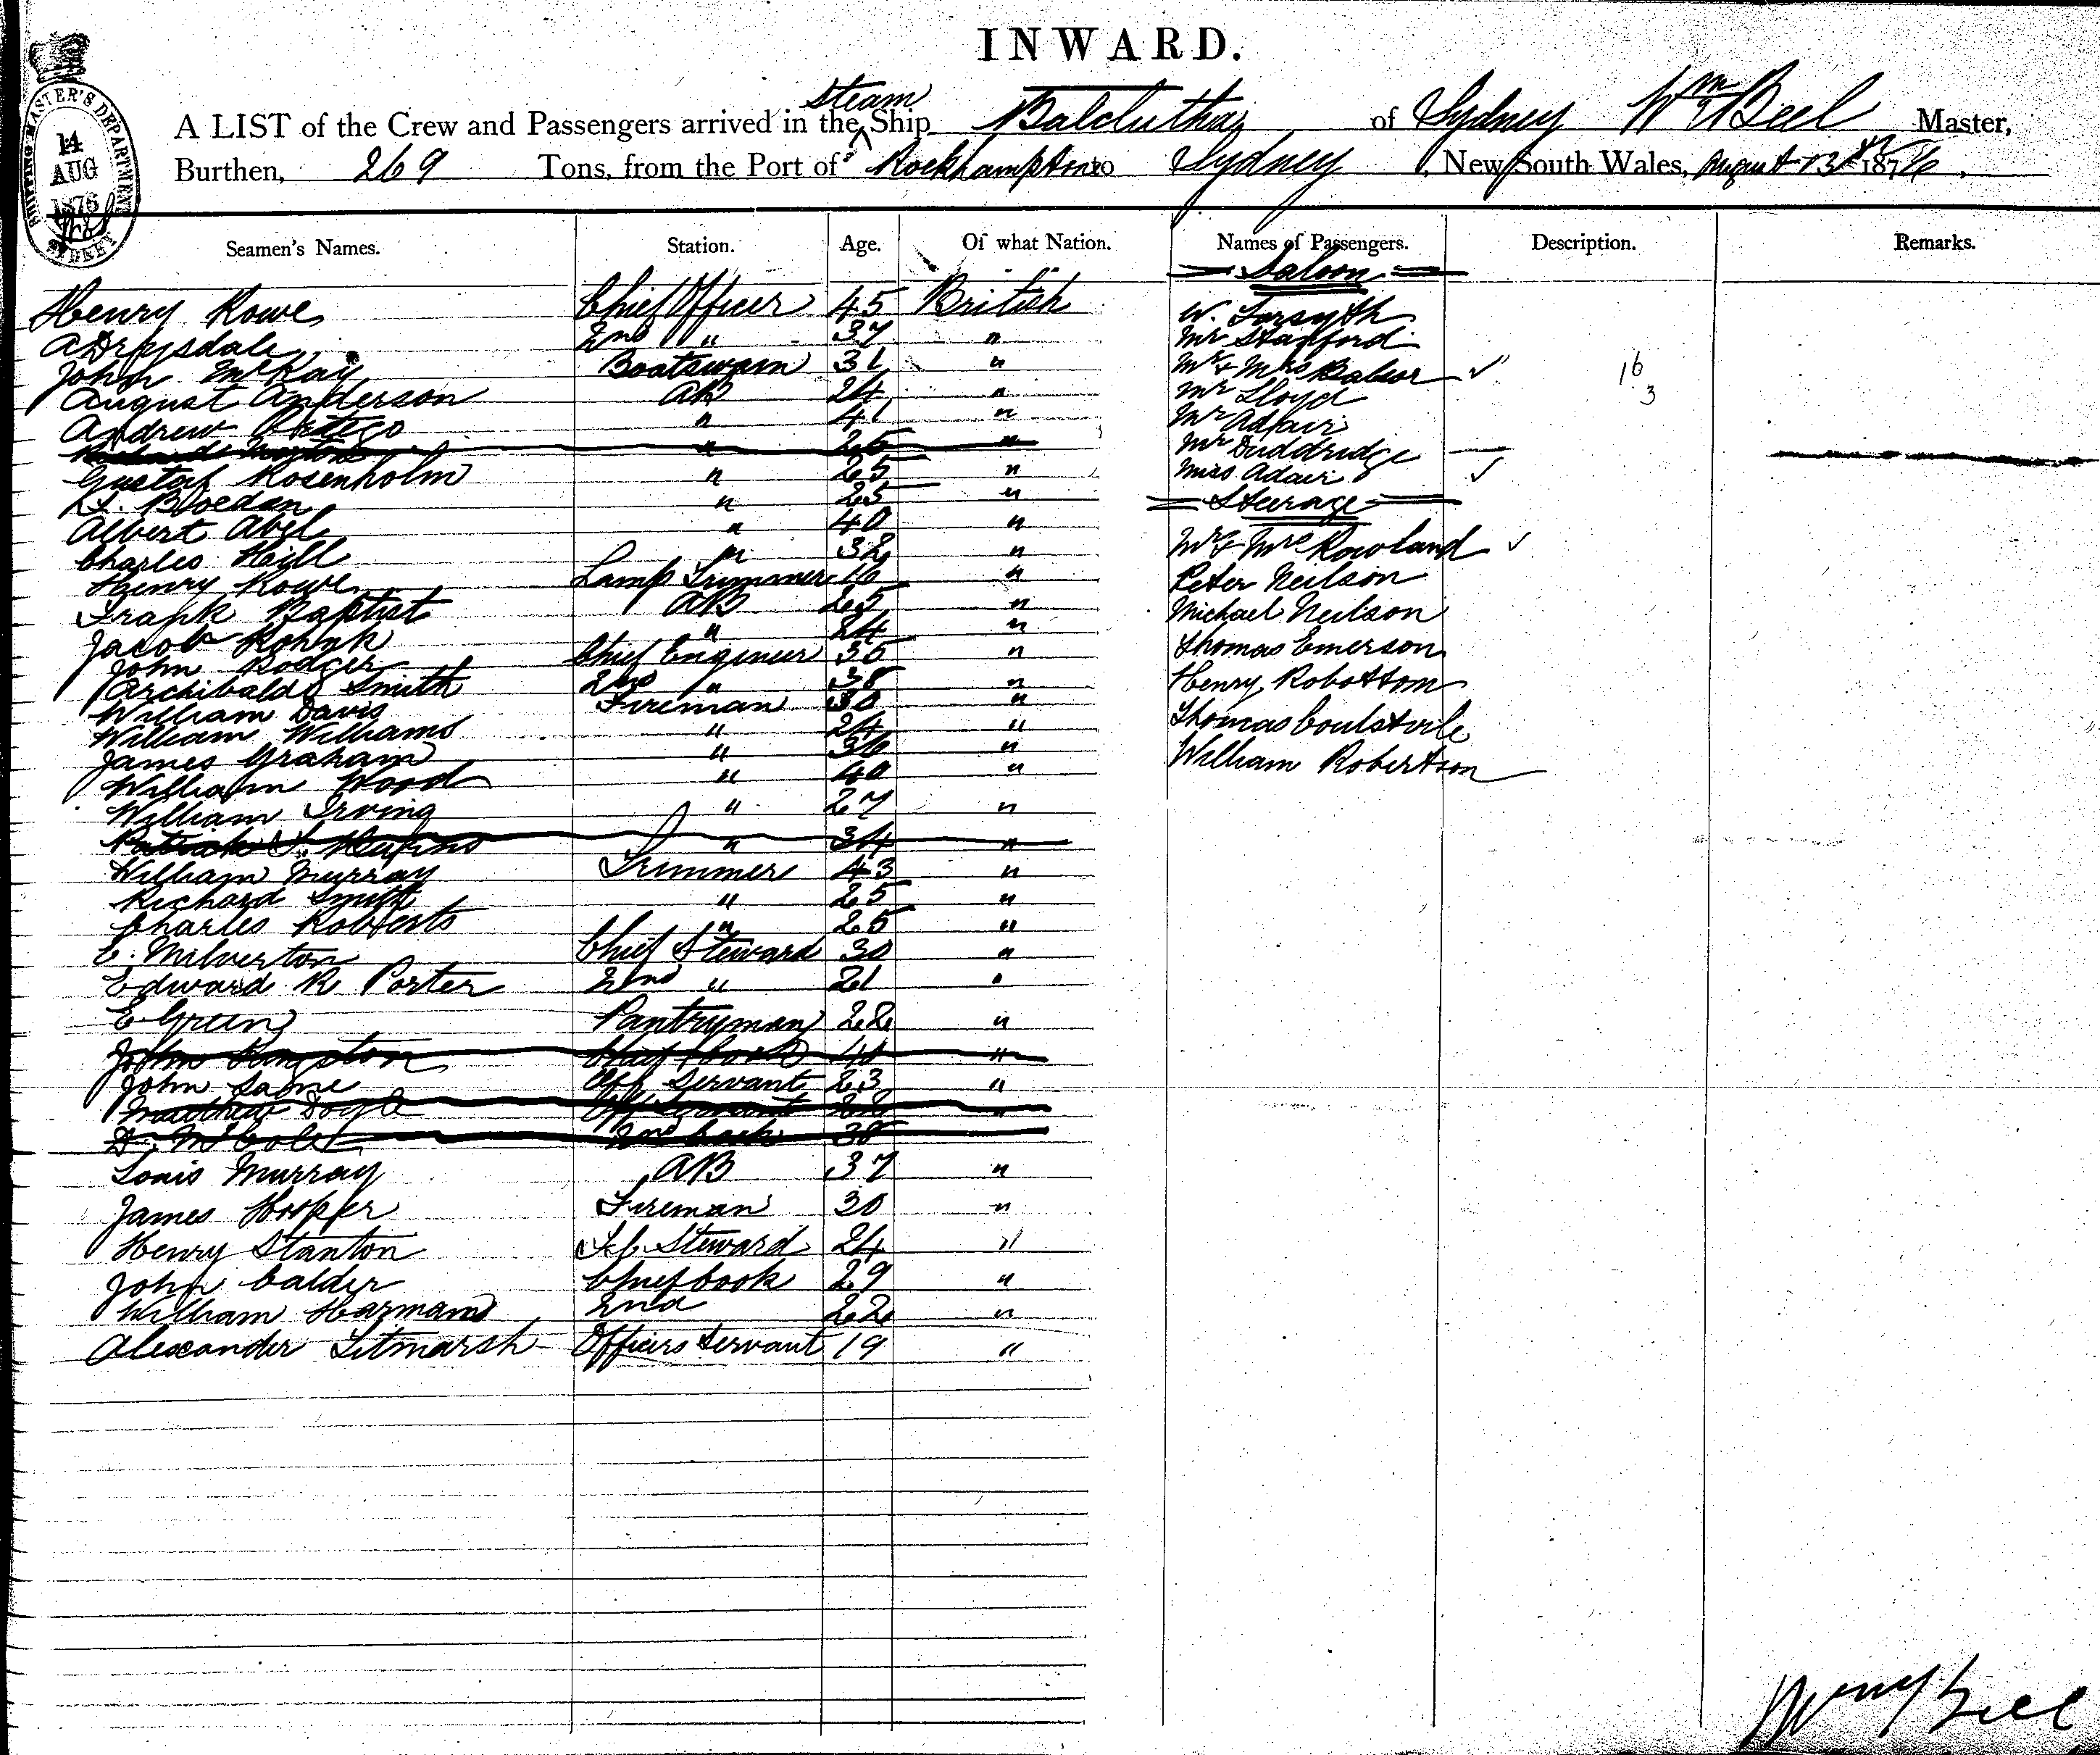 INWARD.
A LIST of the Crew and Passengers arrived in the steam Ship Balclutha of Sydney Wm Beel Master,
Burthen, 269 Tons, from the Port of Rockhampton to Sydney, New South Wales, August 13th 1876.
SHIPPING MASTER'S DEPARTMENT
14
AUG
1876
SYDNEY
Seamen's Names. Station. Age. Of what Nation. Names of Passengers. Description. Remarks.
Henry Rowe Chief Officer 45 British
A Drysdale 2nd " 37 "
John McKay Boatswain 31 "
August Anderson AB 24 "
Andrew 41 "
26 "
Gustaf Rosenholm " 25 "
Bloedan " 25 "
Albert Abel " 40 "
Charles Hill " 32 "
Henry Rowe Lamp Trimmer 16 "
Frank Baptist AB 25 "
Jacob " 24 "
John Rodger Chief Engineer 36 "
Archibald Smith 2nd " 38 "
William Davis Fireman 30 "
William Williams " 24 "
James Graham " 36 "
William Wood " 40 "
William Irving " 27 "
Patrick " 34 "
William Murray Trimmer 43 "
Richard Smith " 25 "
Charles Roberts " 25 "
E. Milverton Chief Steward 30 "
Edward R Porter 2nd " 21 "
E Green Pantryman 22 "
John Kingston Chief Cook 40 "
John Off Servant 23 "
Matthew Doyle Off Servant 22 "
D. McCole 2nd Cook 38
Louis Murray AB 37 "
James Hooper Fireman 30 "
Henry Stanton Steward 24 "
John Calder Chief Cook 29 "
William Harman 2nd 22 "
Alexander Titmarsh Officers Servant 19 "
Saloon
W. Forsyth
Mr Stanford
Mr & Mrs
Mr Lloyd
Mr Adair
Mr Duddridge
Miss Adair
Steerage
Mr & Mrs Rowland
Peter Neilson
Michael Neilson
Thomas Emerson
Henry Robottom
Thomas
William Robertson
16
3
Wm Beel